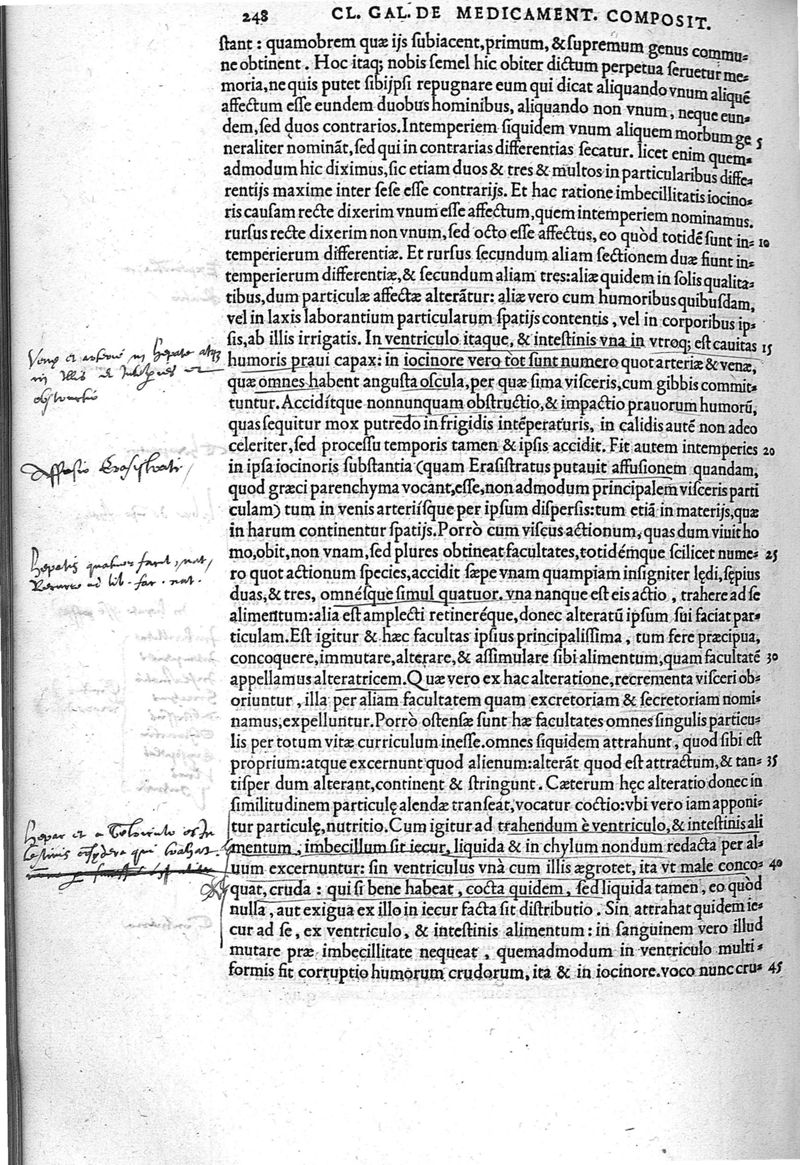 248 CL. GAL. DE MEDICAMENT. COMPOSIT.
ſtant: quamobrem quæ ijs ſubiacent, primum, & ſupremum genus commu-
ne obtinent. Hoc itaq; nobis ſemel hic obiter dictum perpetua ſeruetur me-
moria, ne quis putet ſibijpſi repugnare eum qui dicat aliquando vnum aliquē
affectum eſſe eundem duobus hominibus, aliquando non vnum, neque eun-
dem, ſed duos contrarios. Intemperiem ſiquidem vnum aliquem morbum ge 5
neraliter nomināt, ſed qui in contrarias differentias ſecatur. licet enim quem-
admodum hic diximus, ſic etiam duos & tres & multos in particularibus diffe-
rentijs maxime inter ſeſe eſſe contrarijs. Et hac ratione imbecillitatis iocino-
ris cauſam recte dixerim vnum eſſe affectum, quem intemperiem nominamus.
rurſus recte dixerim non vnum, ſed octo eſſe affectus, eo quòd totidē ſunt in- 10
temperierum differentiæ. Et rurſus ſecundum aliam ſectionem duæ fiunt in-
temperierum differentiæ, & ſecundum aliam tres: aliæ quidem in ſolis qualita-
tibus, dum particulæ affectæ alterātur: aliæ vero cum humoribus quibuſdam,
vel in laxis laborantium particularum ſpatijs contentis, vel in corporibus ip-
ſis, ab illis irrigatis. In ventriculo itaque, & inteſtinis vna in vtroq; eſt cauitas 15
humoris praui capax: in iocinore vero tot ſunt numero quot arteriæ & venæ,
quæ omnes habent anguſta oſcula, per quæ ſima viſceris, cum gibbis commit-
tuntur. Accidítque nonnunquam obſtructio, & impactio prauorum humorū,
quas ſequitur mox putredo in frigidis intēperaturis, in calidis autē non adeo
celeriter, ſed proceſſu temporis tamen & ipſis accidit. Fit autem intemperies 20
in ipſa iocinoris ſubſtantia (quam Eraſiſtratus putauit affuſionem quandam,
quod græci parenchyma vocant, eſſe, non admodum principalem viſceris parti
culam) tum in venis arteriíſque per ipſum diſperſis: tum etiā in materijs, quæ
in harum continentur ſpatijs. Porrò cum viſcus actionum, quas dum viuit ho
mo, obit, non vnam, ſed plures obtineat facultates, totidémque ſcilicet nume- 25
ro quot actionum ſpecies, accidit ſæpe vnam quampiam inſigniter lędi, ſępius
duas, & tres, omnéſque ſimul quatuor. vna nanque eſt eis actio, trahere ad ſe
alimentum: alia eſt amplecti retineréque, donec alteratū ipſum ſui faciat par-
ticulam. Eſt igitur & hæc facultas ipſius principaliſſima, tum fere præcipua,
concoquere, immutare, alterare, & aſſimulare ſibi alimentum, quam facultatē 30
appellamus alteratricem. Quæ vero ex hac alteratione, recrementa viſceri ob-
oriuntur, illa per aliam facultatem quam excretoriam & ſecretoriam nomi-
namus, expelluntur. Porrò oſtenſæ ſunt hæ facultates omnes ſingulis particu-
lis per totum vitæ curriculum ineſſe. omnes ſiquidem attrahunt, quod ſibi eſt
proprium: atque excernunt quod alienum: alterāt quod eſt attractum, & tan- 35
tiſper dum alterant, continent & ſtringunt. Cæterum hęc alteratio donec in
ſimilitudinem particulę alendæ tranſeat, vocatur coctio: vbi vero iam apponi-
tur particulę, nutritio. Cum igitur ad trahendum è ventriculo, & inteſtinis ali
mentum, imbecillum ſit iecur, liquida & in chylum nondum redacta per al-
uum excernuntur: ſin ventriculus vnà cum illis ægrotet, ita vt male conco- 40
quat, cruda: qui ſi bene habeat, cocta quidem, ſed liquida tamen, eo quòd
nulla, aut exigua ex illo in iecur facta ſit diſtributio. Sin attrahat quidem ie-
cur ad ſe, ex ventriculo, & inteſtinis alimentum: in ſanguinem vero illud
mutare præ imbecillitate nequeat, quemadmodum in ventriculo multi-
formis fit corruptio humorum crudorum, ita & in iocinore. voco nunc cru- 45
Affusio Erasistrati